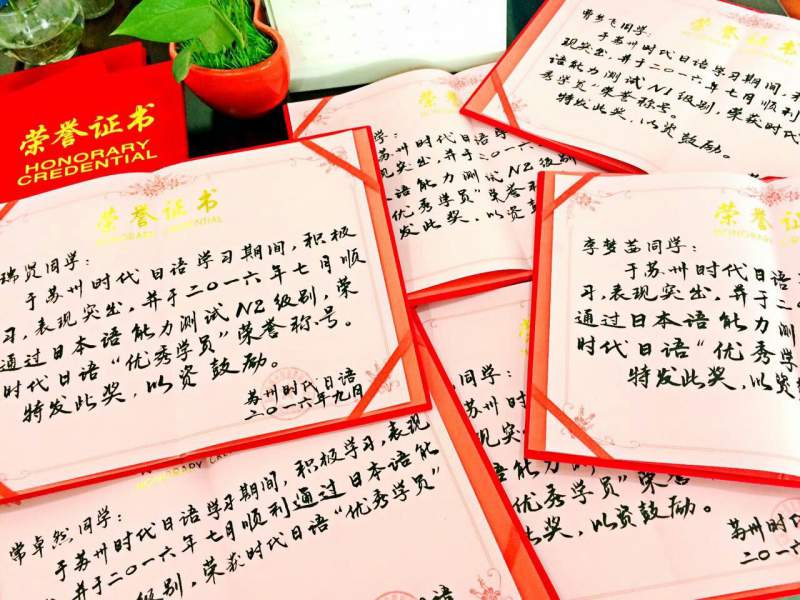 荣誉证书
HONORARY
CREDENTIAL
荣誉证书
HONORARY CREDENTIAL
瑞贤同学:
于苏州时代日语学习期间,积极
习,表现突出,并于二〇一六年七月顺
通过日本语能力测试N2级别,荣
时代日语“优秀学员”荣誉称号。
特发此奖,以资鼓励。
苏州时代日语
二〇一六年九月
同学:
于苏州时代日语学习期间,
现突出,并于二〇一六年七月顺利
语能力测试N1级别,荣获时代
秀学员”荣誉称号。
特发此奖,以资鼓励。
学:
苏州时代日语学
现突出,并于二〇一六
能力测试N2级别
优秀学员”荣誉
发此奖,以资
荣誉证
HONORARY
李梦
同学:
于苏州时代日语
习,表现突出,并于二
通过日本语能力
时代日语“优秀学
特发此奖,以资
常卓然同学:
于苏州时代日语学习期间,积极学习,表现
并于二〇一六年七月顺利通过日本语能
级别,荣获时代日语“优秀学员”
同学:
于苏州时代
现突出
语能力
优秀学员”荣誉
此奖,以资鼓励。
苏州时
二〇一六